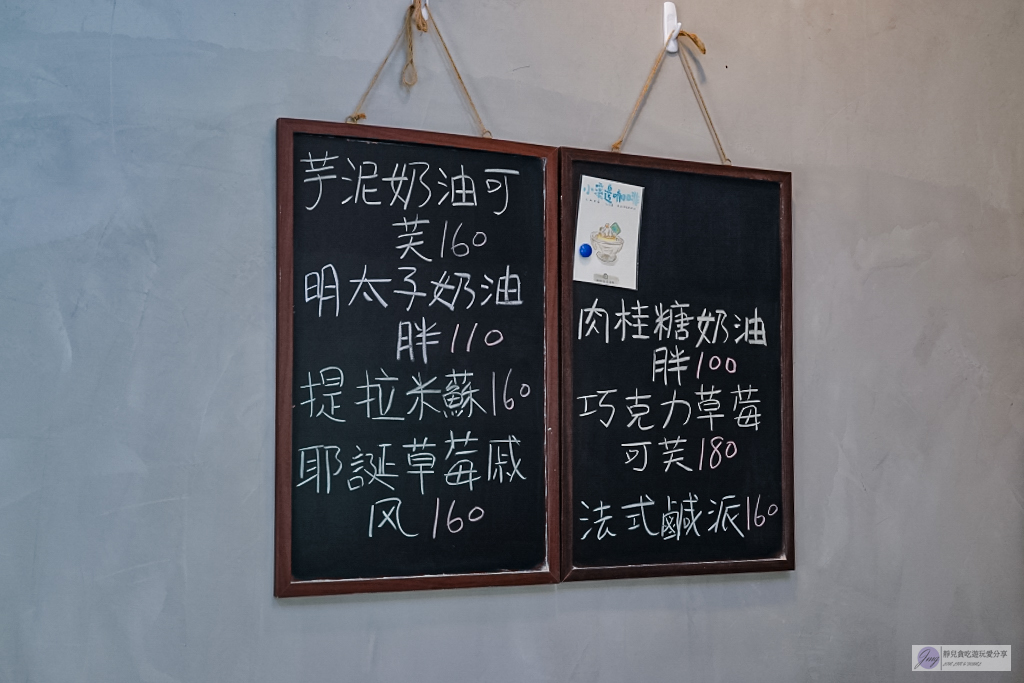 芋泥奶油可
芙160
明太子奶油
胖110
提拉米蘇160
耶誕草莓戚
风160
肉桂糖奶油
胖100
巧克力草莓
可芙180
法式鹹派160
靜兒貪吃遊玩愛分享